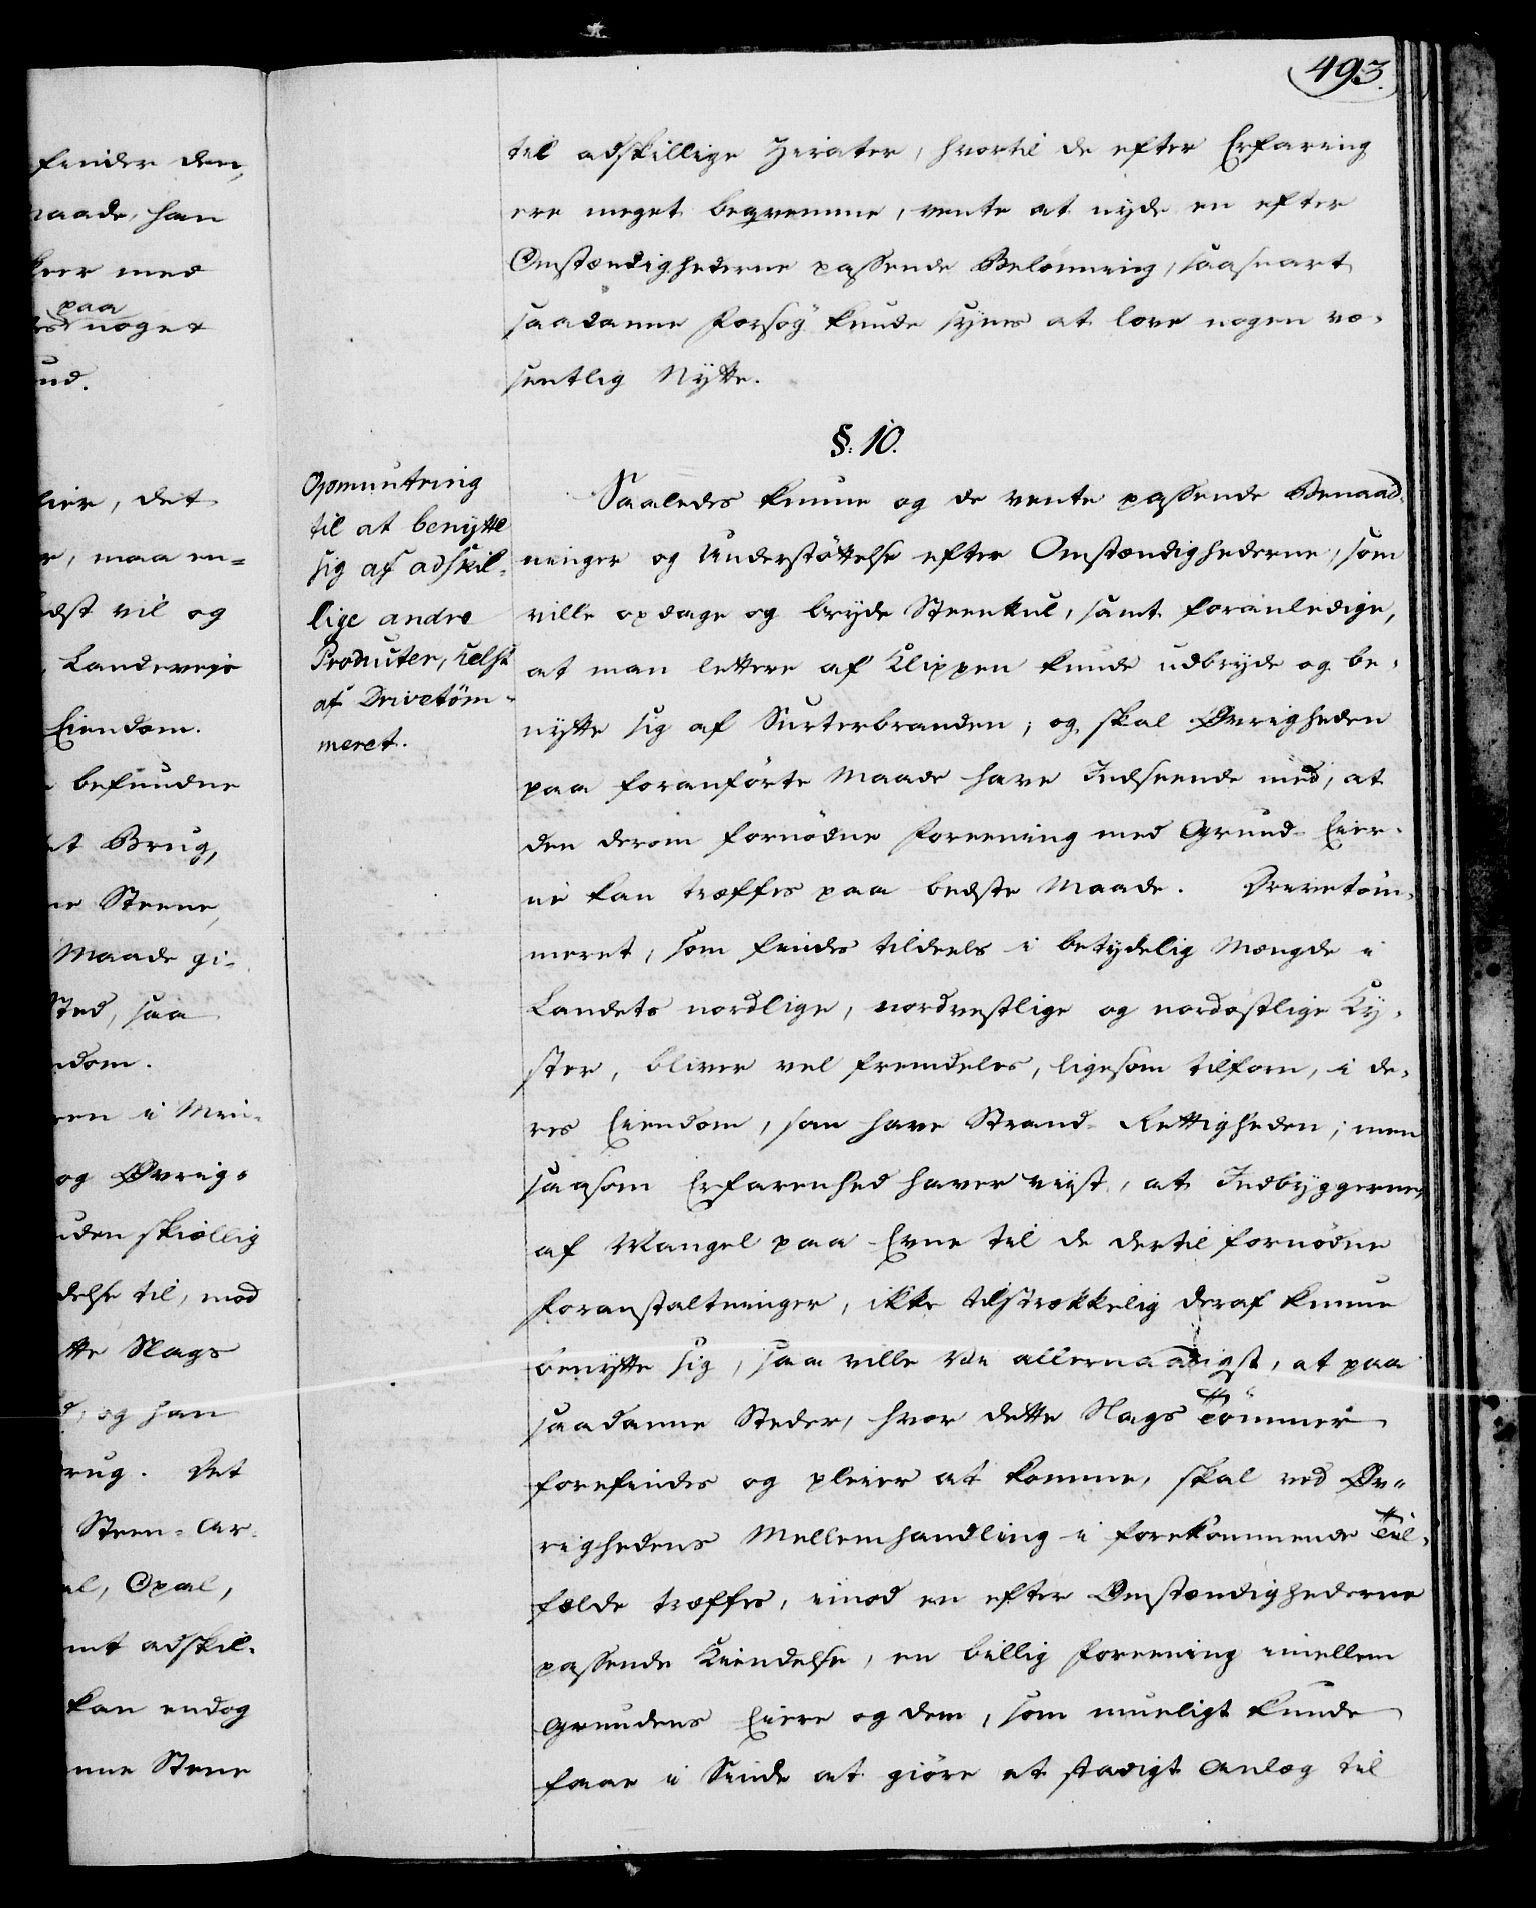 493.
finder den,
maade, han
med
paa
noget
ud.
det
maa en=
vil og
Landeveje
Eiendom.
befundne
Brug,
Steene,
Maade gi-
Sted, saa
ndom.
i Men-
og Øvrig-
uden skiellig
delse til, mod
Slags
og han
rug. Det
Steen-Ar-
Opal,
adskil-
kan endog
Steene
til adskillige Zirater, hvortil de efter Erfaring
ere meget beqvemme, vente at nyde en efter
Omstændighederne passende Belönning, saasnart
saadanne Forsög kunde synes at love nogen væ-
sentlig Nytte.
§. 10.
Opmuntring
til at benytte
sig af adskil-
lige andre
Producter, helst
af Drivetöm-
meret.
Saaledes kunne og de vente passende Benaad-
ninger og Understöttelse efter Omstændighederne, som
ville opdage og bryde Steenkul, samt foranledige,
at man lettere af Klippen kunde udbryde og be-
nytte sig af Surterbranden; og skal Øvrigheden
paa foranförte Maade have Indseende med, at
den derom fornödne Foreening med Grund-Eier-
ne kan træffes paa bedste Maade. Drivetöm-
meret, som findes tildeels i betydelig Mængde i
Landets nordlige, nordvestlige og nordöstlige Ky-
ster, bliver vel fremdeles, ligesom tilforn, i de-
res Eiendom, som have Strand-Rettigheden; men
saasom Erfarenhed haver viist, at Indbyggerne,
af Mangel paa Evne til de dertil fornödne
Foranstaltninger, ikke tilstrækkelig deraf kunne
benytte sig, saa ville Vi allernaadigst, at paa
saadanne Steder, hvor dette Slags Tömmer
forefindes og pleier at komme, skal ved Øv-
righedens Mellemhandling i forekommende Til-
fælde træffes, imod en efter Omstændighederne
passende Kiendelse, en billig Foreening imellem
Grundens Eiere og dem, som mueligt kunde
faae i Sinde at giöre et stadigt Anlæg til